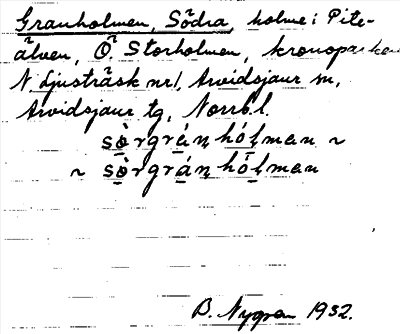 Granholmen, Södra, holme i Pite-
älven, Ö. Storholmen, kronoparken
N. Ljusträsk nr 1, Arvidsjaur sn,
Arvidsjaur tg, Norrb. l.
sò̱rgrá̱ṇhó̱ḷman ~
~ sò̱rgrá̱ṇhó̱ḷman
B. Nygren 1932.